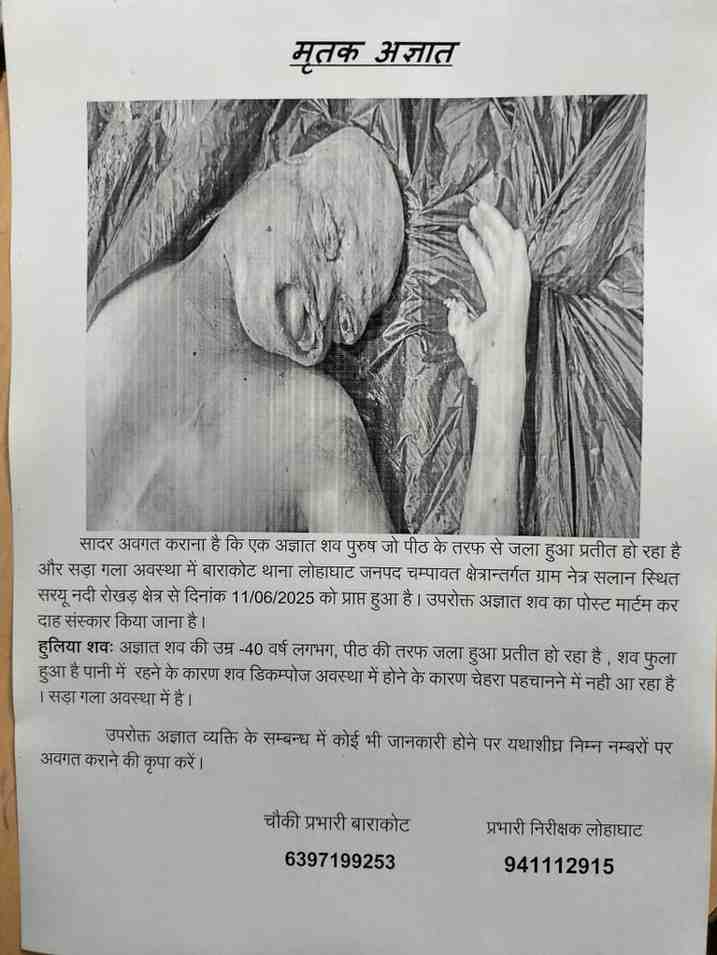 मृतक अज्ञात
सादर अवगत कराना है कि एक अज्ञात शव पुरुष जो पीठ के तरफ से जला हुआ प्रतीत हो रहा है
और सड़ा गला अवस्था में बाराकोट थाना लोहाघाट जनपद चम्पावत क्षेत्रान्तर्गत ग्राम नेत्र सलान स्थित
सरयू नदी रोखड़ क्षेत्र से दिनांक 11/06/2025 को प्राप्त हुआ है। उपरोक्त अज्ञात शव का पोस्ट मार्टम कर
दाह संस्कार किया जाना है।
हुलिया शवः अज्ञात शव की उम्र -40 वर्ष लगभग, पीठ की तरफ जला हुआ प्रतीत हो रहा है , शव फुला
हुआ है पानी में रहने के कारण शव डिकम्पोज अवस्था में होने के कारण चेहरा पहचानने में नही आ रहा है
। सड़ा गला अवस्था में है।
उपरोक्त अज्ञात व्यक्ति के सम्बन्ध में कोई भी जानकारी होने पर यथाशीघ्र निम्न नम्बरों पर
अवगत कराने की कृपा करें।
चौकी प्रभारी बाराकोट
6397199253
प्रभारी निरीक्षक लोहाघाट
941112915